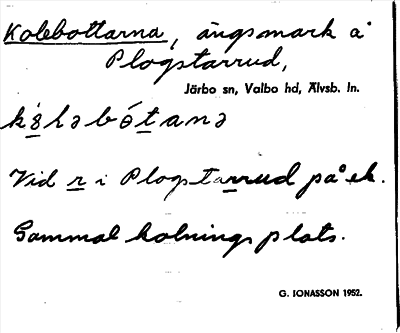 Kolebottarna, ängsmark å
Plogstarrud,
Järbo sn, Valbo hd, Älvsb. ln.
Vid r i Plogstarrud på ek.
Gammal kolningsplats.
G. IONASSON 1952.